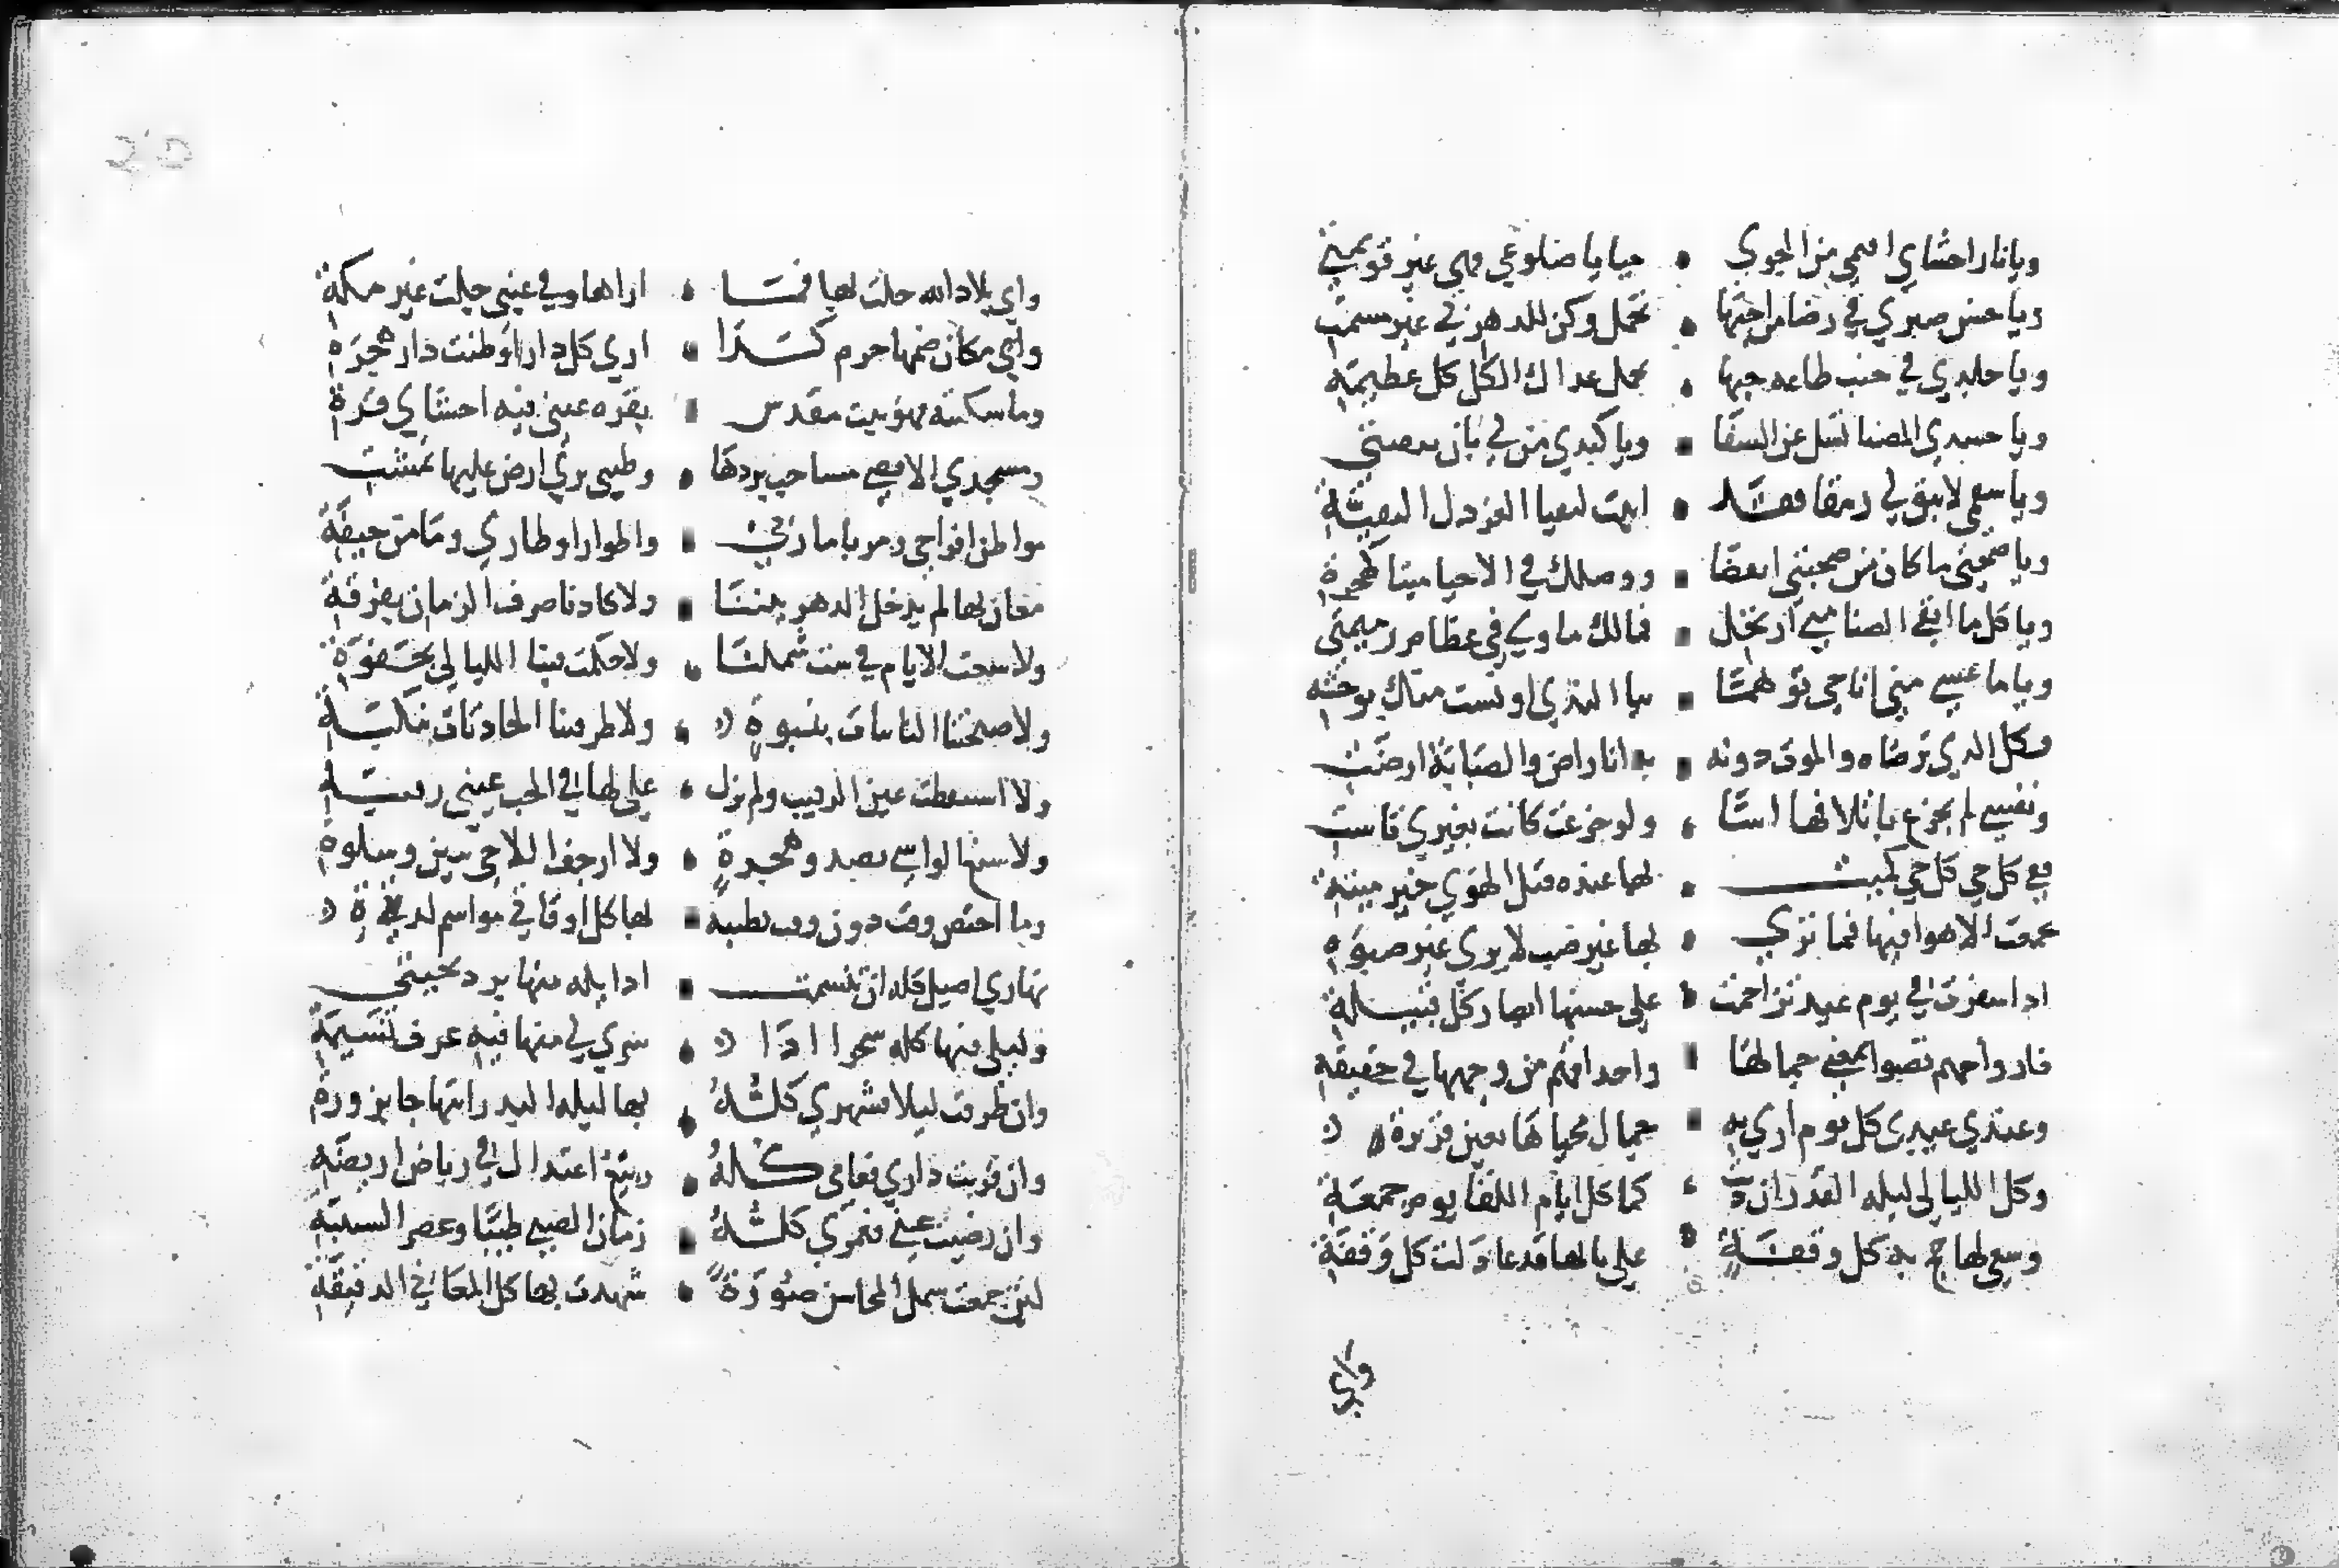 ويانار احشاي اقيمي من الجوي • حنايا ضلوعي فهي غير قويمتي
ويا حسن صبري في رضا من احبها • تجمل وكن للدهر بي غير مشمت
ويا جلدي في جنب طاعه حبها • تحمل عداك الكل كل عظيمة
ويا جسدي المضنا تسل عن الشفا • ويا كبدي من لي بان تتفتتي
ويا سقمي لا تبق لي رمقا فقد • ابيت لبقيا العز ذل البقية
ويا صحتي ما كان من صحبتي انقضا • ووصلك في الاحيا ميتا كهجرة
ويا كل ما ابقي الضنا مني ارتحل • فما لك ماوي في عظام رميمتي
ويا ما عسي مني اناجي توهما • بيا الندي اونست منك بوحشه
فكل الدي ترضاه والموت دونه • به انا راض والصبابة ارضت
ونفسي لم تجزع باتلافها اسا • ولو جزعت كانت بغيري تاست
وفي كل حي كل حي كميت • لها عنده قتل الهوي خير ميتة
تجمعت الاهوا فيها فما تري • بها غير صب لا يري غير صبوة
اذا سفرت في يوم عيد تزاحمت • علي حسنها ابصار كل قبيلة
فارواحهم تصبوا لمعني جمالها • واحداقهم من وجهها في حقيقة
وعندي عيدي كل يوم اري به • جمال محياها بعين قريرة
وكل الليالي ليله القدر ان دنت • كما كل ايام اللقا يوم جمعة
وسعي لها حج به كل وقفة • علي بابها قد عادلت كل وقفة
واي
واي بلاد الله حلت بها فما • اراها وفي عيني حلت غير مكة
واي مكان ضمها حرم كذا • اري كل دار اوطنت دار هجرة
وما سكنته فهو بيت مقدس • بقره عيني فيه احشاي قرة
ومسجدي الاقصي مساحب بردها • وطيبي ثري ارض عليها تمشت
مواطن افراحي ومربا ماربي • واطوار اوطاري ومامن خيفة
مغان بها لم يدخل الدهر بيننا • ولا كادنا صرف الزمان بفرقة
ولا سعت الايام في شت شملنا • ولا حكمت فينا الليالي بجفوة
ولا صبحتنا النائبات بنبوة • ولا طرقتنا الحادثات بنكبة
ولا استيقظت عين الرقيب ولم تزل • علي لها في الحب عيني رقيبة
ولا شنع الواشي بصد وهجرة • ولا ارجف اللاحي ببين وسلوة
وما اختص وقت دون وقت بطيبة • لها كل اوقاتي مواسم لدتي
نهاري اصيل كله ان تنسمت • اوايله منها برد تحيتي
وليلي فيها كله سحر اذا • سري لي منها فيه عرف نسيمة
وان طرقت ليلا فشهري كله • بها ليله القدر ابتهاجا بزورة
وان قربت داري فعامي كله • ربيع اعتدال في رياض اريضه
وان رضيت عني فعمري كله • زمان الصبي طيبا وعصر الشبيبة
لئن جمعت شمل المحاسن صورة • شهدت بها كل المعاني الدقيقة